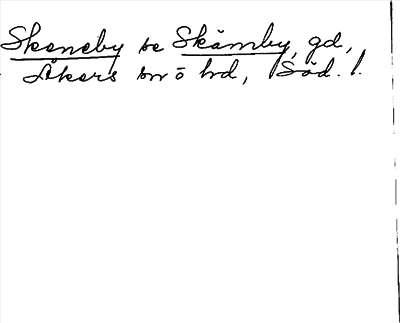 Skeneby se Skämby, gd,
Åkers sn ö hd, Söd. l.